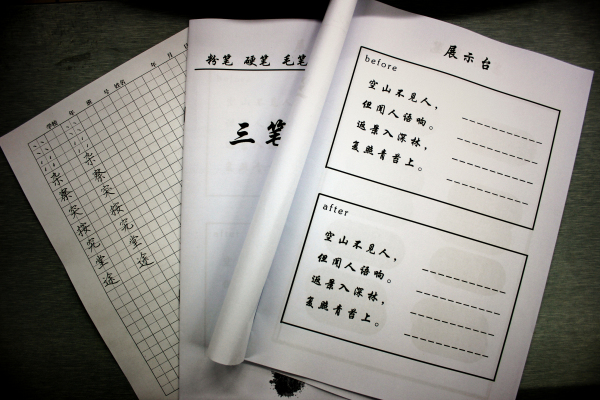 学校 年 班 号 姓名 年 月 日
察 察
突 突
按 按
完 完
堂 堂
途 途
粉笔 硬笔 毛笔
三笔
展示台
before
空山不见人，
但闻人语响。
返景入深林，
复照青苔上。
after
空山不见人，
但闻人语响。
返景入深林，
复照青苔上。